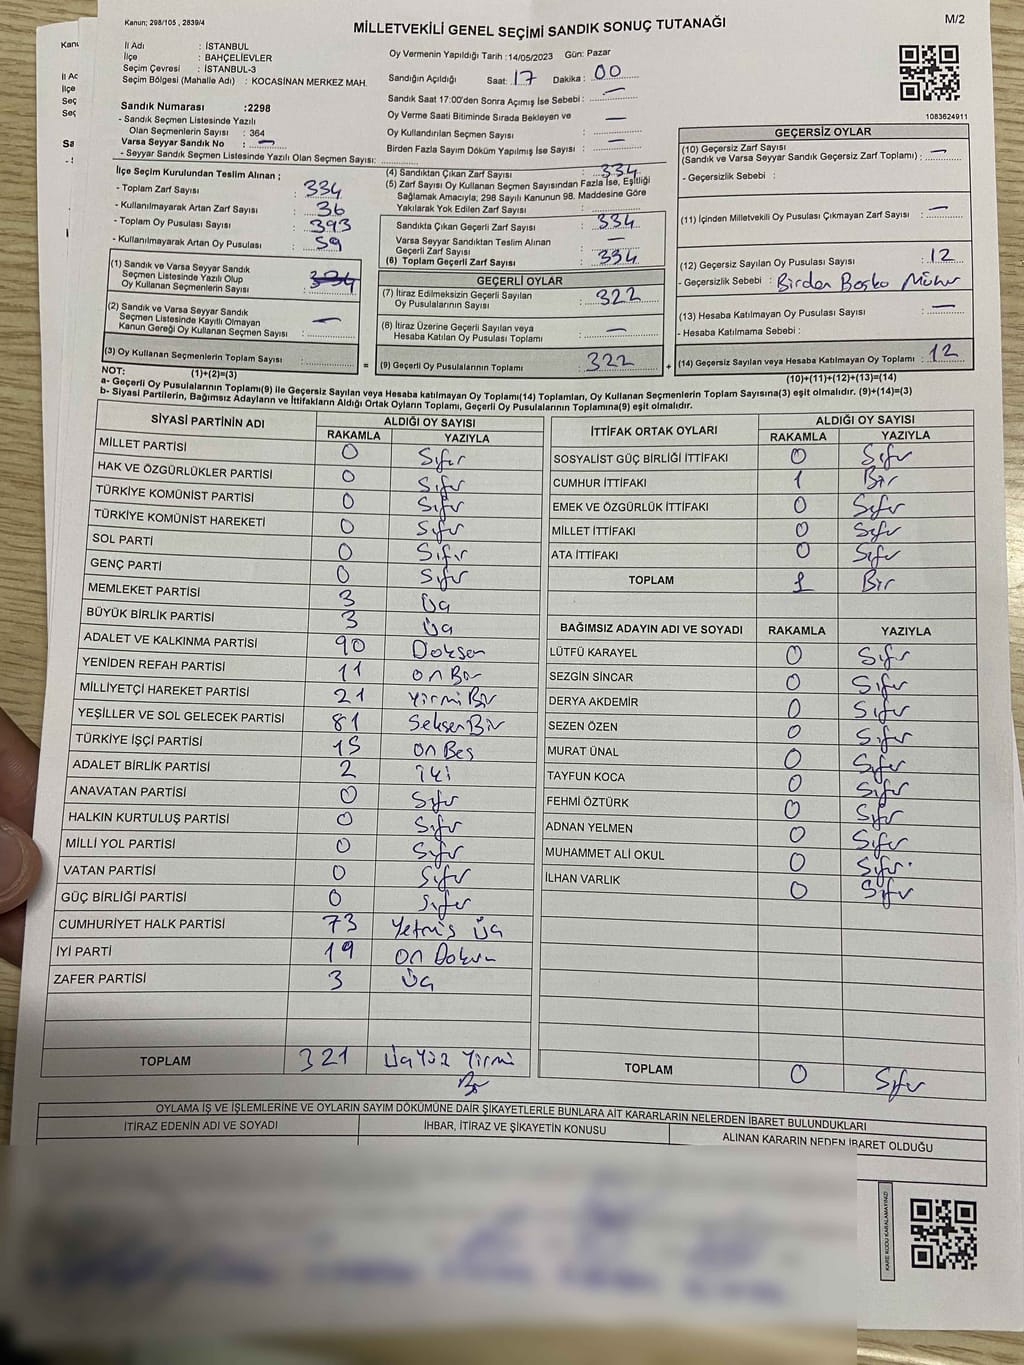 Kanun; 298/105 , 2839/4
MİLLETVEKİLİ GENEL SEÇİMİ SANDIK SONUÇ TUTANAĞI
M/2
İl Adı : İSTANBUL
İlçe : BAHÇELİEVLER
Seçim Çevresi : İSTANBUL-3
Seçim Bölgesi (Mahalle Adı) : KOCASİNAN MERKEZ MAH.
Sandık Numarası :2298
- Sandık Seçmen Listesinde Yazılı
Olan Seçmenlerin Sayısı : 364
Varsa Seyyar Sandık No : —
- Seyyar Sandık Seçmen Listesinde Yazılı Olan Seçmen Sayısı:
Oy Vermenin Yapıldığı Tarih :14/05/2023 Gün: Pazar
Sandığın Açıldığı Saat: 17 Dakika : 00
Sandık Saat 17:00'den Sonra Açımış İse Sebebi : —
Oy Verme Saati Bitiminde Sırada Bekleyen ve
Oy Kullandırılan Seçmen Sayısı : —
Birden Fazla Sayım Döküm Yapılmış İse Sayısı : —
1083624911
İlçe Seçim Kurulundan Teslim Alınan ;
- Toplam Zarf Sayısı : 334
- Kullanılmayarak Artan Zarf Sayısı : 36
- Toplam Oy Pusulası Sayısı : 393
- Kullanılmayarak Artan Oy Pusulası : 59
(1) Sandık ve Varsa Seyyar Sandık
Seçmen Listesinde Yazılı Olup
Oy Kullanan Seçmenlerin Sayısı : 334
(2) Sandık ve Varsa Seyyar Sandık
Seçmen Listesinde Kayıtlı Olmayan
Kanun Gereği Oy Kullanan Seçmen Sayısı : —
(3) Oy Kullanan Seçmenlerin Toplam Sayısı :
(1)+(2)=(3)
(4) Sandıktan Çıkan Zarf Sayısı : 334
(5) Zarf Sayısı Oy Kullanan Seçmen Sayısından Fazla İse, Eşitliği
Sağlamak Amacıyla; 298 Sayılı Kanunun 98. Maddesine Göre
Yakılarak Yok Edilen Zarf Sayısı :
Sandıkta Çıkan Geçerli Zarf Sayısı : 334
Varsa Seyyar Sandıktan Teslim Alınan
Geçerli Zarf Sayısı : —
(6) Toplam Geçerli Zarf Sayısı : 334
GEÇERLİ OYLAR
(7) İtiraz Edilmeksizin Geçerli Sayılan
Oy Pusulalarının Sayısı : 322
(8) İtiraz Üzerine Geçerli Sayılan veya
Hesaba Katılan Oy Pusulası Toplamı : —
= (9) Geçerli Oy Pusulalarının Toplamı : 322
GEÇERSİZ OYLAR
(10) Geçersiz Zarf Sayısı
(Sandık ve Varsa Seyyar Sandık Geçersiz Zarf Toplamı) : —
- Geçersizlik Sebebi :
(11) İçinden Milletvekili Oy Pusulası Çıkmayan Zarf Sayısı : —
(12) Geçersiz Sayılan Oy Pusulası Sayısı : 12
- Geçersizlik Sebebi : Birden Başka Mühür
(13) Hesaba Katılmayan Oy Pusulası Sayısı : —
- Hesaba Katılmama Sebebi :
+ (14) Geçersiz Sayılan veya Hesaba Katılmayan Oy Toplamı : 12
(10)+(11)+(12)+(13)=(14)
NOT:
a- Geçerli Oy Pusulalarının Toplamı(9) ile Geçersiz Sayılan veya Hesaba katılmayan Oy Toplamı(14) Toplamları, Oy Kullanan Seçmenlerin Toplam Sayısına(3) eşit olmalıdır. (9)+(14)=(3)
b- Siyasi Partilerin, Bağımsız Adayların ve İttifakların Aldığı Ortak Oyların Toplamı, Geçerli Oy Pusulalarının Toplamına(9) eşit olmalıdır.
SİYASİ PARTİNİN ADI ALDIĞI OY SAYISI
RAKAMLA YAZIYLA
MİLLET PARTİSİ 0 Sıfır
HAK VE ÖZGÜRLÜKLER PARTİSİ 0 Sıfır
TÜRKİYE KOMÜNİST PARTİSİ 0 Sıfır
TÜRKİYE KOMÜNİST HAREKETİ 0 Sıfır
SOL PARTİ 0 Sıfır
GENÇ PARTİ 0 Sıfır
MEMLEKET PARTİSİ 3 Üç
BÜYÜK BİRLİK PARTİSİ 3 Üç
ADALET VE KALKINMA PARTİSİ 90 Doksan
YENİDEN REFAH PARTİSİ 11 On Bir
MİLLİYETÇİ HAREKET PARTİSİ 21 Yirmi Bir
YEŞİLLER VE SOL GELECEK PARTİSİ 81 Seksen Bir
TÜRKİYE İŞÇİ PARTİSİ 15 On Beş
ADALET BİRLİK PARTİSİ 2 iki
ANAVATAN PARTİSİ 0 Sıfır
HALKIN KURTULUŞ PARTİSİ 0 Sıfır
MİLLİ YOL PARTİSİ 0 Sıfır
VATAN PARTİSİ 0 Sıfır
GÜÇ BİRLİĞİ PARTİSİ 0 Sıfır
CUMHURİYET HALK PARTİSİ 73 Yetmiş Üç
İYİ PARTİ 19 On Dokuz
ZAFER PARTİSİ 3 Üç
TOPLAM 321 Üç Yüz Yirmi Bir
İTTİFAK ORTAK OYLARI ALDIĞI OY SAYISI
RAKAMLA YAZIYLA
SOSYALİST GÜÇ BİRLİĞİ İTTİFAKI 0 Sıfır
CUMHUR İTTİFAKI 1 Bir
EMEK VE ÖZGÜRLÜK İTTİFAKI 0 Sıfır
MİLLET İTTİFAKI 0 Sıfır
ATA İTTİFAKI 0 Sıfır
TOPLAM 1 Bir
BAĞIMSIZ ADAYIN ADI VE SOYADI RAKAMLA YAZIYLA
LÜTFÜ KARAYEL 0 Sıfır
SEZGİN SİNCAR 0 Sıfır
DERYA AKDEMİR 0 Sıfır
SEZEN ÖZEN 0 Sıfır
MURAT ÜNAL 0 Sıfır
TAYFUN KOCA 0 Sıfır
FEHMİ ÖZTÜRK 0 Sıfır
ADNAN YELMEN 0 Sıfır
MUHAMMET ALİ OKUL 0 Sıfır
İLHAN VARLIK 0 Sıfır
TOPLAM 0 Sıfır
OYLAMA İŞ VE İŞLEMLERİNE VE OYLARIN SAYIM DÖKÜMÜNE DAİR ŞİKAYETLERLE BUNLARA AİT KARARLARIN NELERDEN İBARET BULUNDUKLARI
İTİRAZ EDENİN ADI VE SOYADI İHBAR, İTİRAZ VE ŞİKAYETİN KONUSU ALINAN KARARIN NEDEN İBARET OLDUĞU
KARE KODU KARALAMAYINIZ!